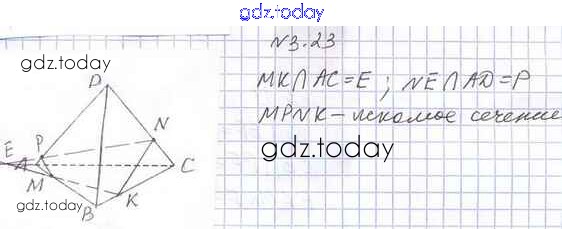 gdz.today
N3.23
gdz.today
MK∩AC=E; NE∩AD=P
MPNK - искомое сечение
gdz.today
D
N
E P
A C
M
K
B
gdz.today